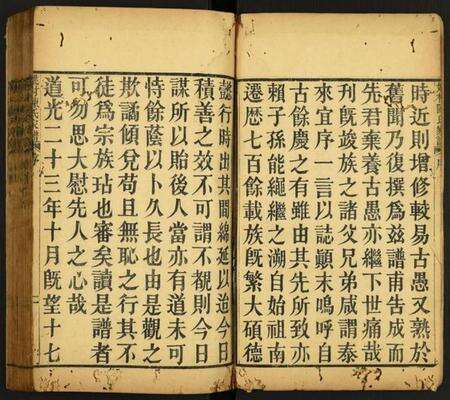 時近則增修較易古愚又熟於
舊聞乃復撰爲兹譜甫告成而
先君棄養古愚亦繼下世痛哉
刋旣竣族之諸父兄弟咸謂泰
來宜序一言以誌顚末嗚呼自
古餘慶之有雖由其先所致亦
賴子孫能繩繼之溯自始祖南
遷歴七百餘載族旣繁大碩德
懿行時出其間綿延以迨今日
積善之效不可謂不覩則今日
謀所以貽後人當亦有道未可
恃餘蔭以卜久長也由是觀之
欺譎傾兌苟且無恥之行其不
徒爲宗族玷也審矣讀是譜者
可勿思大慰先人之心哉
道光二十三年十月旣望十七